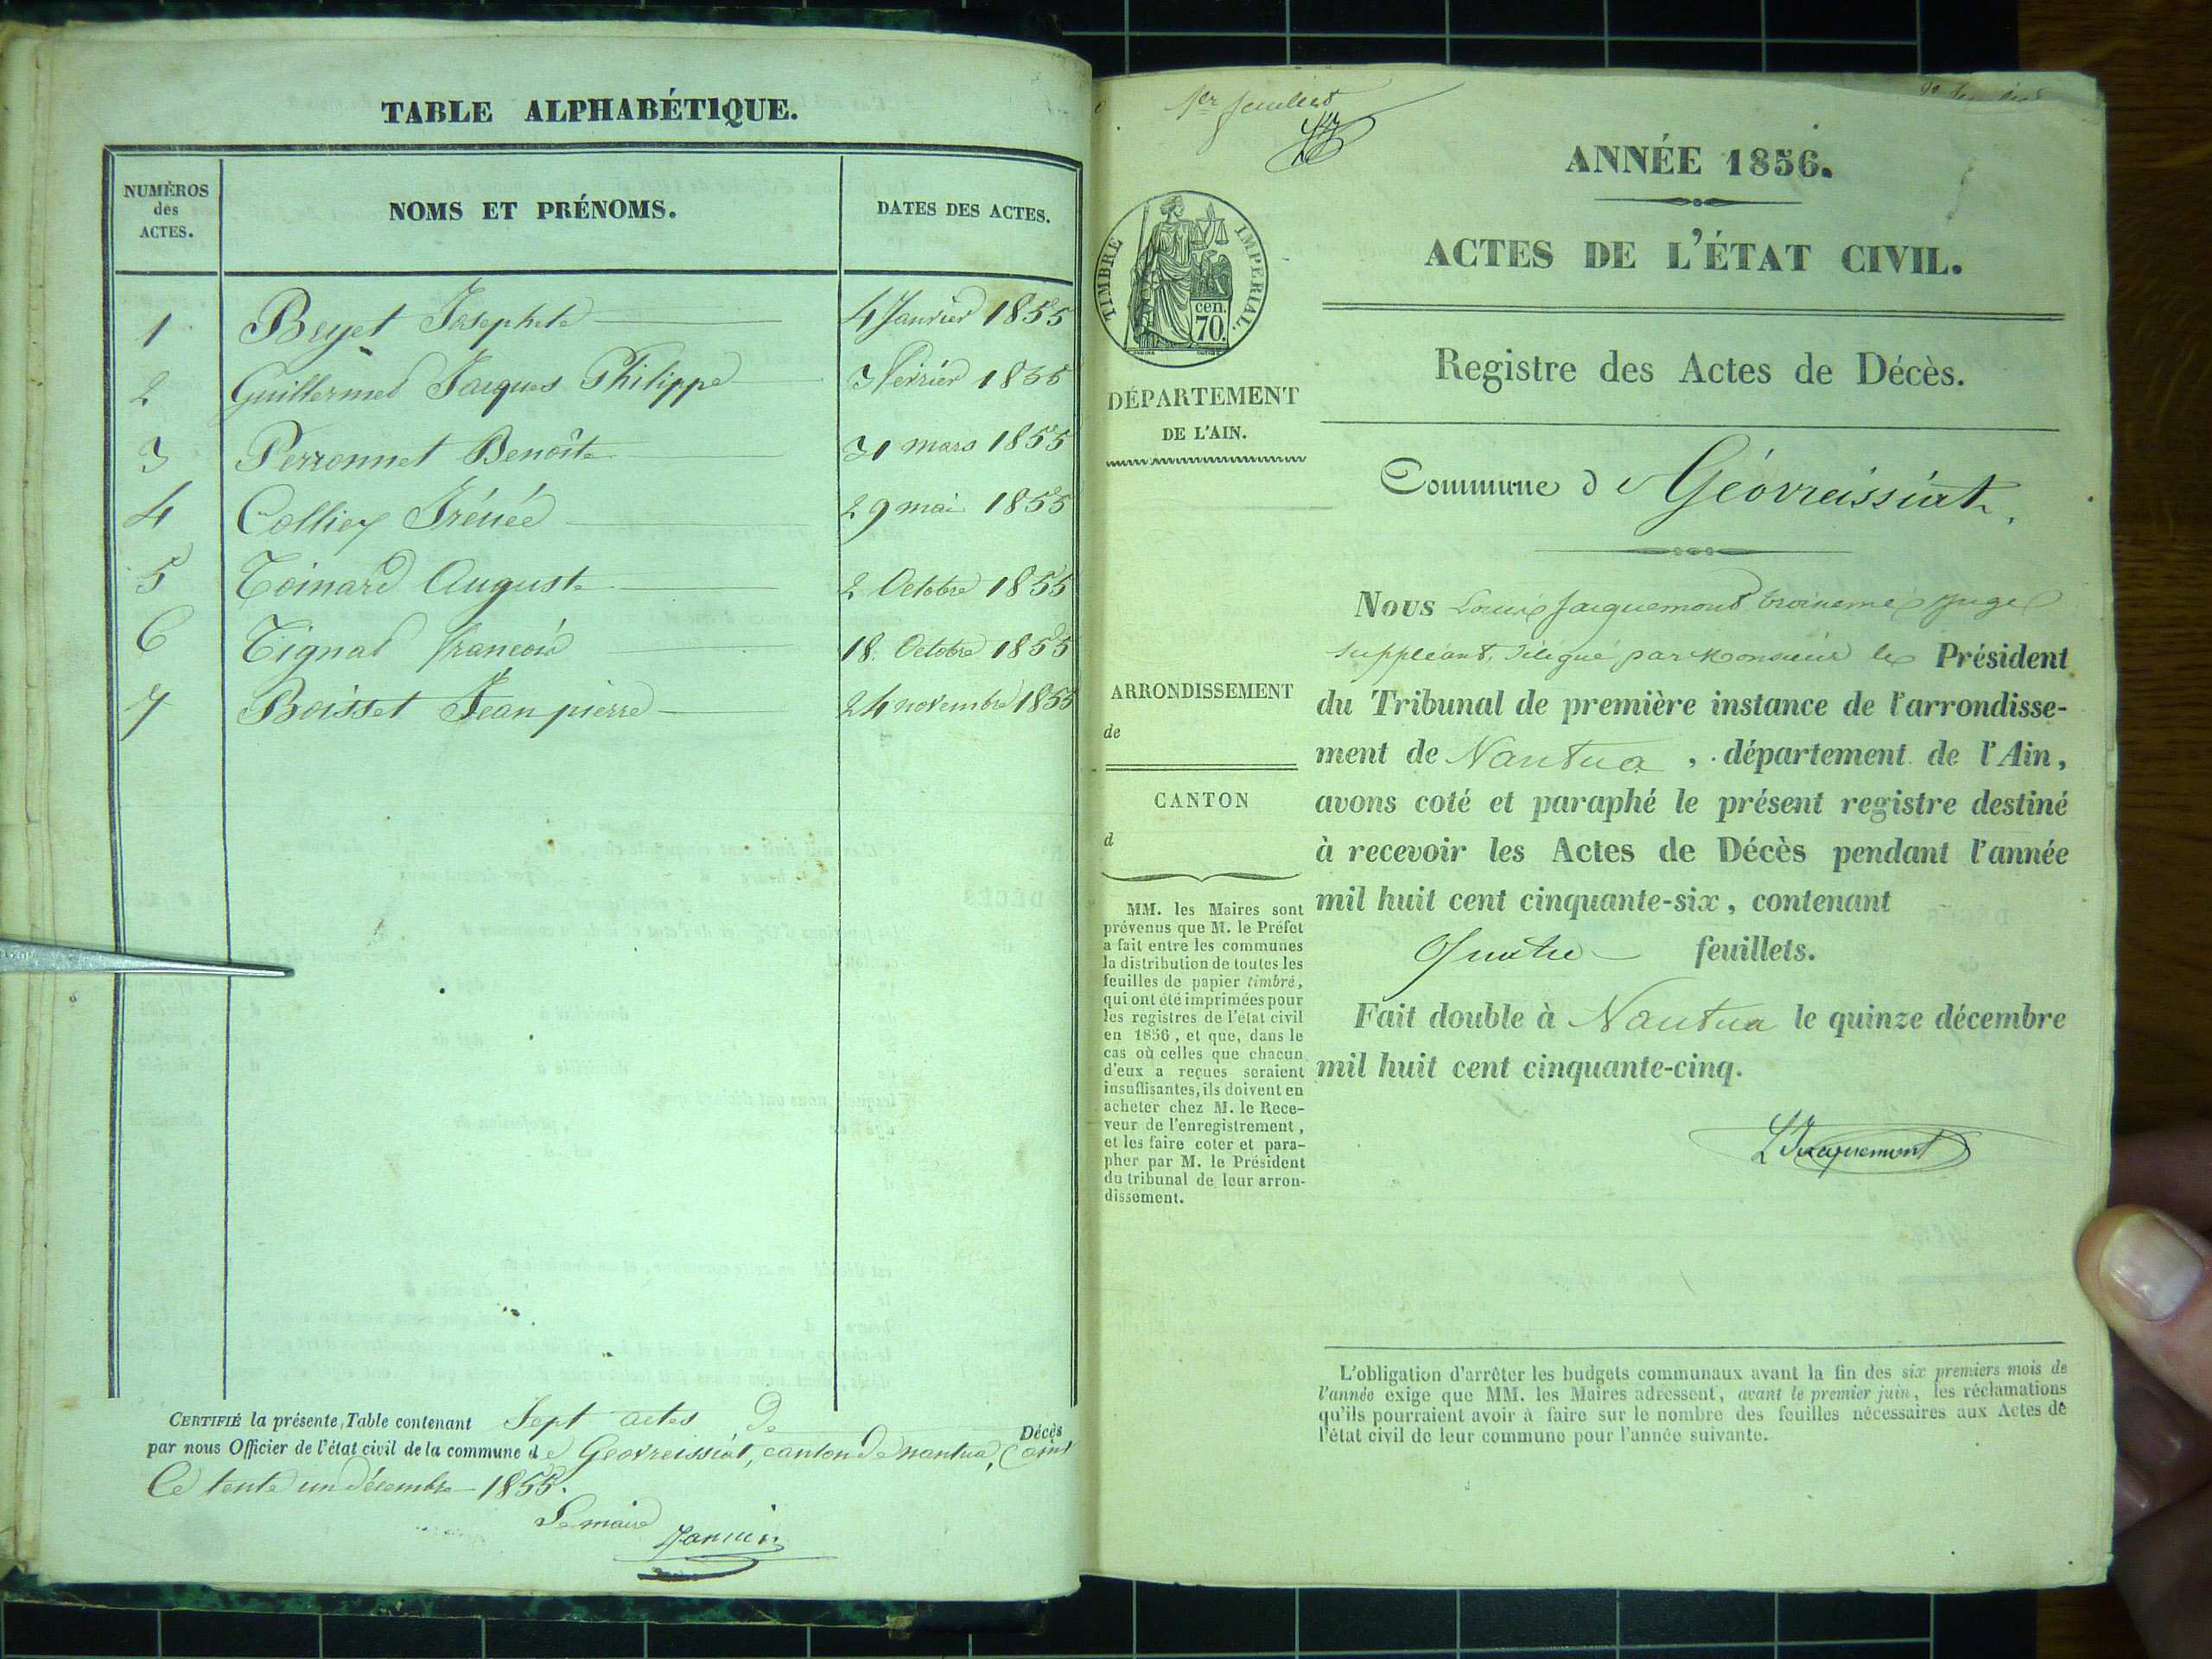 TABLE ALPHABÉTIQUE.
NUMÉROS
des
ACTES.
NOMS ET PRÉNOMS.
DATES DES ACTES.
1 Beyet Josephete 4 Janvier 1855
2 Guillermet Jacques Philippe 3 février 1855
3 Perronnet Benoîte 31 mars 1855
4 Colliex Irénée 29 mai 1855
5 Toinard Auguste 2 Octobre 1855
6 Tignat francois 18 Octobre 1855
7 Boisset Jean pierre 24 novembre 1855
CERTIFIÉ la présente Table contenant Sept actes de Décès
par nous Officier de l'état civil de la commune de Géovreissiat, canton de nantua, (ain)
Ce trente un décembre 1855.
Le maire
1er feuillet
TIMBRE IMPERIAL.
cen.
70.
DÉPARTEMENT
DE L'AIN.
ARRONDISSEMENT
de
CANTON
d
MM. les Maires sont
prévenus que M. le Préfet
a fait entre les communes
la distribution de toutes les
feuilles de papier timbré,
qui ont été imprimées pour
les registres de l'état civil
en 1856, et que, dans le
cas où celles que chacun
d'eux a reçues seraient
insuffisantes, ils doivent en
acheter chez M. le Rece-
veur de l'enregistrement,
et les faire coter et para-
pher par M. le Président
du tribunal de leur arron-
dissement.
ANNÉE 1856.
ACTES DE L'ÉTAT CIVIL.
Registre des Actes de Décès.
Commune de Géovreissiat.
Nous Louis Jacquemont troisième Juge
suppléant, délégué par Monsieur le Président
du Tribunal de première instance de l'arrondisse-
ment de Nantua, département de l'Ain,
avons coté et paraphé le présent registre destiné
à recevoir les Actes de Décès pendant l'année
mil huit cent cinquante-six, contenant
Quatre feuillets.
Fait double à Nantua le quinze décembre
mil huit cent cinquante-cinq.
L Jacquemont
L'obligation d'arrêter les budgets communaux avant la fin des six premiers mois de
l'année exige que MM. les Maires adressent, avant le premier juin, les réclamations
qu'ils pourraient avoir à faire sur le nombre des feuilles nécessaires aux Actes de
l'état civil de leur commune pour l'année suivante.